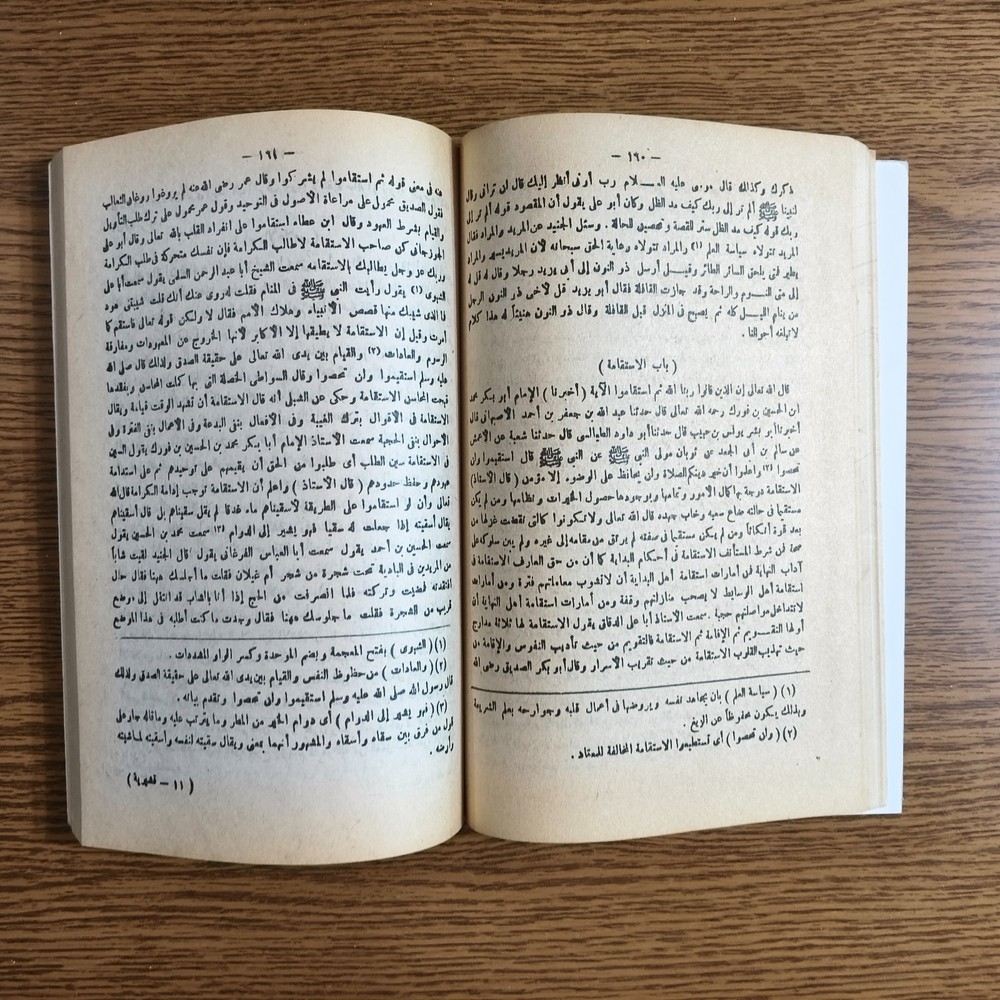 — ١٦٠ —
ذكرك وكذلك قال موسى عليه السـلام رب أرنى أنظر إليك قال لن ترانى وقال
لنبينا ﷺ ألم تر إلى ربك كيف مد الظل وكان أبو على يقول أن المقصود قوله ألم تر إلى
ربك قوله كيف مد الظل ستر للقصة وتحصين للحالة . وسئل الجنيد عن المريد والمراد فقال
المريد تتولاه سياسة العلم (١) والمراد تتولاه رعاية الحق سبحانه لأن المريد يسير والمراد
يطير فتى يلحق السائر الطائر وقيـل أرسل ذو النون إلى أبى يزيد رجلا وقال له قل له
إلى متى النـوم والراحة وقد جازت القافلة فقال أبو يزيد قل لأخى ذو النون الرجل
من ينام الليـل كله ثم يصبح فى المنزل قبل القافلة وقال ذو النون هنيئاً له هذا كلام
لا تبلغه أحوالنا .
( باب الاستقامة )
قال الله تعالى إن الذين قالوا ربنا الله ثم استقاموا الآية ( أخبرنا ) الإمام أبو بكر محمد
ابن الحسين بن فورك رحمه الله تعالى قال حدثنا عبد الله بن جعفر بن أحمد الأصبهانى قال
أخبرنا أبو بشر يونس بن حبيب قال حدثنا أبو داود الطيالسى قال حدثنا شعبة عن الأعمش
عن سالم بن أبى الجعد عن ثوبان مولى النبى ﷺ عن النبى ﷺ قال استقيموا ولن
تحصوا (٢) واعلموا أن خير دينكم الصلاة ولن يحافظ على الوضوء إلا مؤمن ( قال الأستاذ)
الاستقامة درجة بها كمال الأمور وتمامها وبوجودها حصول الخيرات ونظامها ومن لم يكن
مستقيما فى حالته ضاع سعيه وخاب جهده قال الله تعالى ولا تكونوا كالتى نقضت غزلها من
بعد قوة أنكاثا ومن لم يكن مستقيما فى صفته لم يرتق من مقامه إلى غيره ولم يبن سلوكه على
صحة فمن شرط المستأنف الاستقامة فى أحكام البداية كما أن من حق العارف الاستقامة فى
آداب النهاية فمن أمارات استقامة أهل البداية أن لا تشوب معاملتهم فترة ومن أمارات
استقامة أهل الوسايط لا يصحب منازلتهم وقفة ومن أمارات استقامة أهل النهاية أن
لا تتداخل مواصلتهم حجبة . سمعت الأستاذ أبا على الدقاق يقول الاستقامة لها ثلاثة مدارج
أولها التقـويم ثم الإقامة ثم الاستقامة فالتقويم من حيث تأديب النفوس والإقامة من
حيث تهذيب القلوب الاستقامة من حيث تقريب الأسرار وقال أبو بكر الصديق رضى الله
(١) ( سياسة العلم ) بأن يجاهد نفسه ويروضها فى أعمال قلبه وجوارحه بعلم الشريعة
وبذلك يـكون محفوظاً عن الزيغ .
(٢) ( ولن تحصوا ) أى تستطيعوا الاستقامة المخالفة للمعتاد .
— ١٦١ —
عنه فى معنى قوله ثم استقاموا لم يشركوا وقال عمر رضى الله عنه لم يروغوا روغان الثعالب
فقول الصديق محمول على مراعاة الأصول فى التوحيد وقول عمر محمول على ترك طلب التأويل
والقيام بشرط العهود وقال ابن عطاء استقاموا على انفراد القلب بالله تعالى وقال أبو على
الجوزجانى كن صاحب الاستقامة لا طالب الكرامة فإن نفسك متحركة فى طلب الكرامة
وربك عز وجل يطالبك بالاستقامه سمعت الشيخ أبا عبد الرحمن السلمى يقول سمعت أبا على
الشبوى (١) يقول رأيت النبى ﷺ فى المنام فقلت له روى عنك أنك قلت شيبتنى هود
فما الذى شيبك منها قصص الأنبياء وهلاك الأمم فقال لا ولكن قوله تعالى فاستقم كما
أمرت وقيل إن الاستقامة لا يطيقها إلا الأكابر لأنها الخروج عن المعهودات ومفارقة
الرسوم والعادات (٢) والقيام بين يدى الله تعالى على حقيقة الصدق ولذلك قال صلى الله
عليه وسلم استقيموا ولن تحصوا وقال الواسطى الخصلة التى بها كملت المحاسن وبفقدها
قبحت المحاسن الاستقامة وحكى عن الشبلى أنه قال الاستقامة أن تشهد الوقت قيامة ويقال
الاستقامة فى الأقوال بترك الغيبة وفى الأفعال بنفى البدعة وفى الأعمال بنفى الفترة وفى
الأحوال بنفى الحجبة سمعت الأستاذ الإمام أبا بكر محمد بن الحسين بن فورك يقول السين
فى الاستقامة سين الطلب أى طلبوا من الحق أن يقيمهم على توحيدهم ثم على استدامة
عهودهم وحفظ حدودهم ( قال الأستاذ ) واعلم أن الاستقامة توجب إدامة الكرامة قال الله
تعالى وأن لو استقاموا على الطريقة لأسقيناهم ماء غدقا لم يقل سقيناهم بل قال أسقيناهم
يقال أسقيته إذا جعلت له سقيا فهو يشير إلى الدوام (٣) سمعت محمد بن الحسين يقول
سمعت الحسين بن أحمد يقول سمعت أبا العباس الفرغانى يقول قال الجنيد لقيت شاباً
من المريدين فى البادية تحت شجرة من شجر أم غيلان فقلت ما أجلسك ههنا فقال حال
افتقدته فمضيت وتركته فلما انصرفت من الحج إذا أنا بالشاب قد انتقل إلى موضع
قريب من الشجرة فقلت ما جلوسك ههنا فقال وجدت ما كنت أطلبه فى هذا الموضع
(١) ( الشبوى ) بفتح المعجمة وبضم الموحدة وكسر الواو المشددات .
(٢) ( والعادات ) من حظوظ النفس والقيام بين يدى الله تعالى على حقيقة الصدق ولذلك
قال رسول الله صلى الله عليه وسلم استقيموا ولن تحصوا وتقدم بيانه .
(٣) ( فهو يشير إلى الدوام ) أى دوام الخير من المطر وما يترتب عليه وما قاله جار على
قول من فرق بين سقاه وأسقاه والمشهور أنهما بمعنى ويقال سقيته لنفسه وأسقيته لماشيته
وأرضه .
( ١١ — قشيرية )